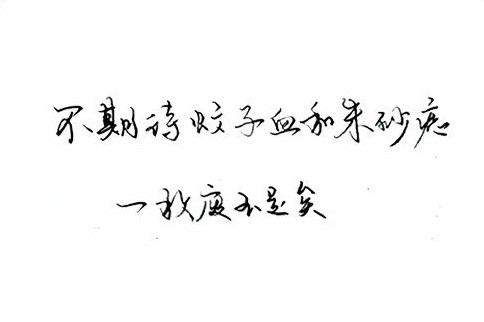 不期待蚊子血和朱砂痣
一敌度不是矣